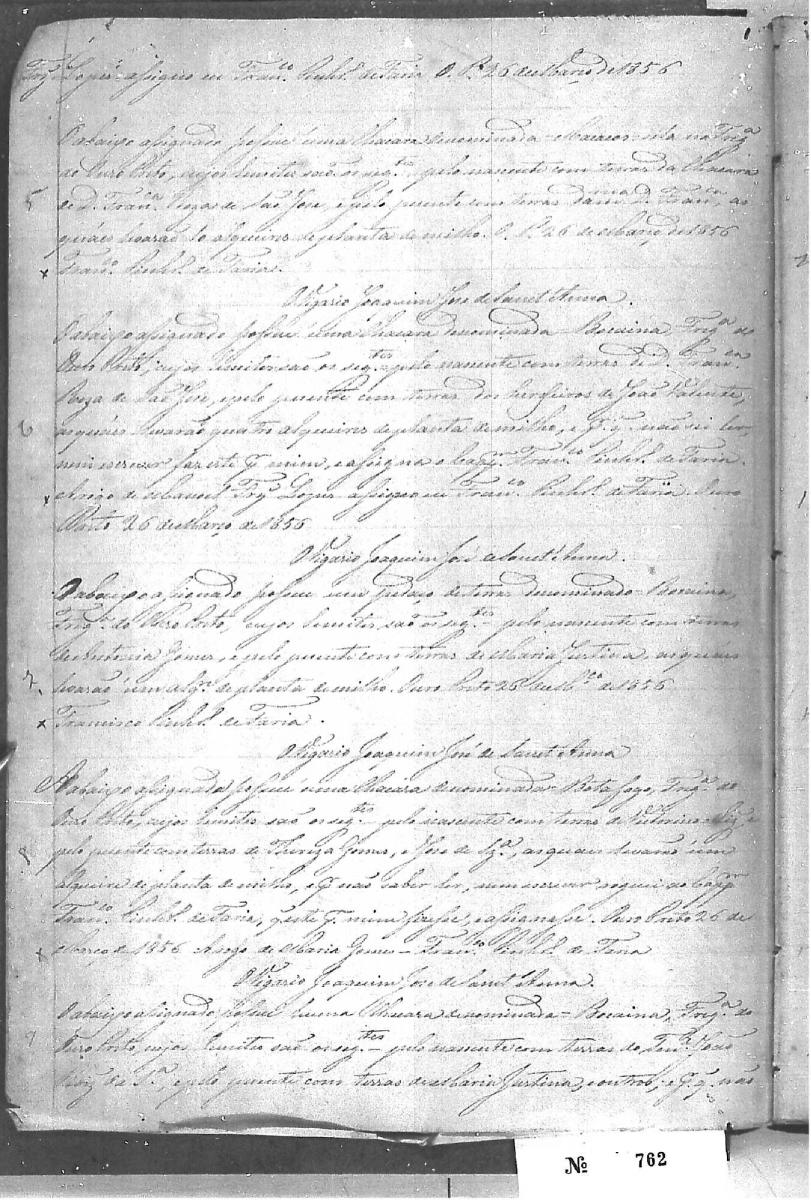 Frz Lopes assigno eu Franco. Pinhl. de Faria O. Pto 26 de Março de 1856
O abaixo assignado possue uma Chacara denominada = Macacos = sita na Freg.a
do Ouro Preto, cujos limites são os seg.tes pelo nascente com terras da Chacara
5 de D. Franca. Roza de São José, e pelo puente com terras da m.ma D. Franca., as
quáes levarão 10 alqueires de planta de milho. O. P. 26 de Março de 1856
x Franco. Pinhl. de Faria.
O Vigario Joaquim José de Sanct'Anna.
O abaixo assignado possue uma Chacara denominada = Bocaina Freg.a do
Ouro Preto, cujos limites são os seg.tes pelo nascente com terras de D. Franca.
Roza de São José, e pelo puente com terras dos herdeiros de João Valente,
6 as quáes levarão quatro alqueires de planta de milho, e p.r q. não sei ler,
nem escrever faz este p.r mim, e assigna o Cap.m Franco. Pinhl. de Faria.
x Arogo de Manoel Frz Lopes assigno eu Franco. Pinhl. de Faria. Ouro
Preto 26 de Março de 1856
O Vigario Joaquim José de Sanct'Anna.
O abaixo assignado possue um pedaço de terras denominado = Bocaina,
Freg.a do Ouro Preto, cujos limites são os seg.tes = pelo nascente com terras
de Antonia Gomes, e pelo puente com terras de Maria Justina, as quáes
7. levarão um alqr.e de planta de milho. Ouro Preto 26 de M.ço de 1856
x Francisco Pinhl. de Faria.
O Vigario Joaquim José de Sanct'Anna
A abaixo assignada possue uma Chacara denominada Bota fogo, Freg.a do
Ouro Preto, cujos limites são os seg.tes pelo nascente com terras de
8 pelo puente com terras de Thereza Gomes, e José de as quaes levarão um
alqueire de planta de milho, e p.r não saber ler, nem escrever roguei ao Cap.m
Franco. Pinhl. de Faria, q. este p.r mim fizesse, e assignasse. Ouro Preto 26 de
x Março de 1856 Arogo de Maria Gomes = Franco. Pinhl. de Faria
O Vigario Joaquim José de Sanct'Anna.
O abaixo assignado possue huma Chacara denominada = Bocaina, Freg.a do
9 Ouro Preto, cujos limites são os seg.tes = pelo nascente com terras do João
da S.a, e pelo puente com terras de Maria Justina, e outros, e p.r q. não
№ 762